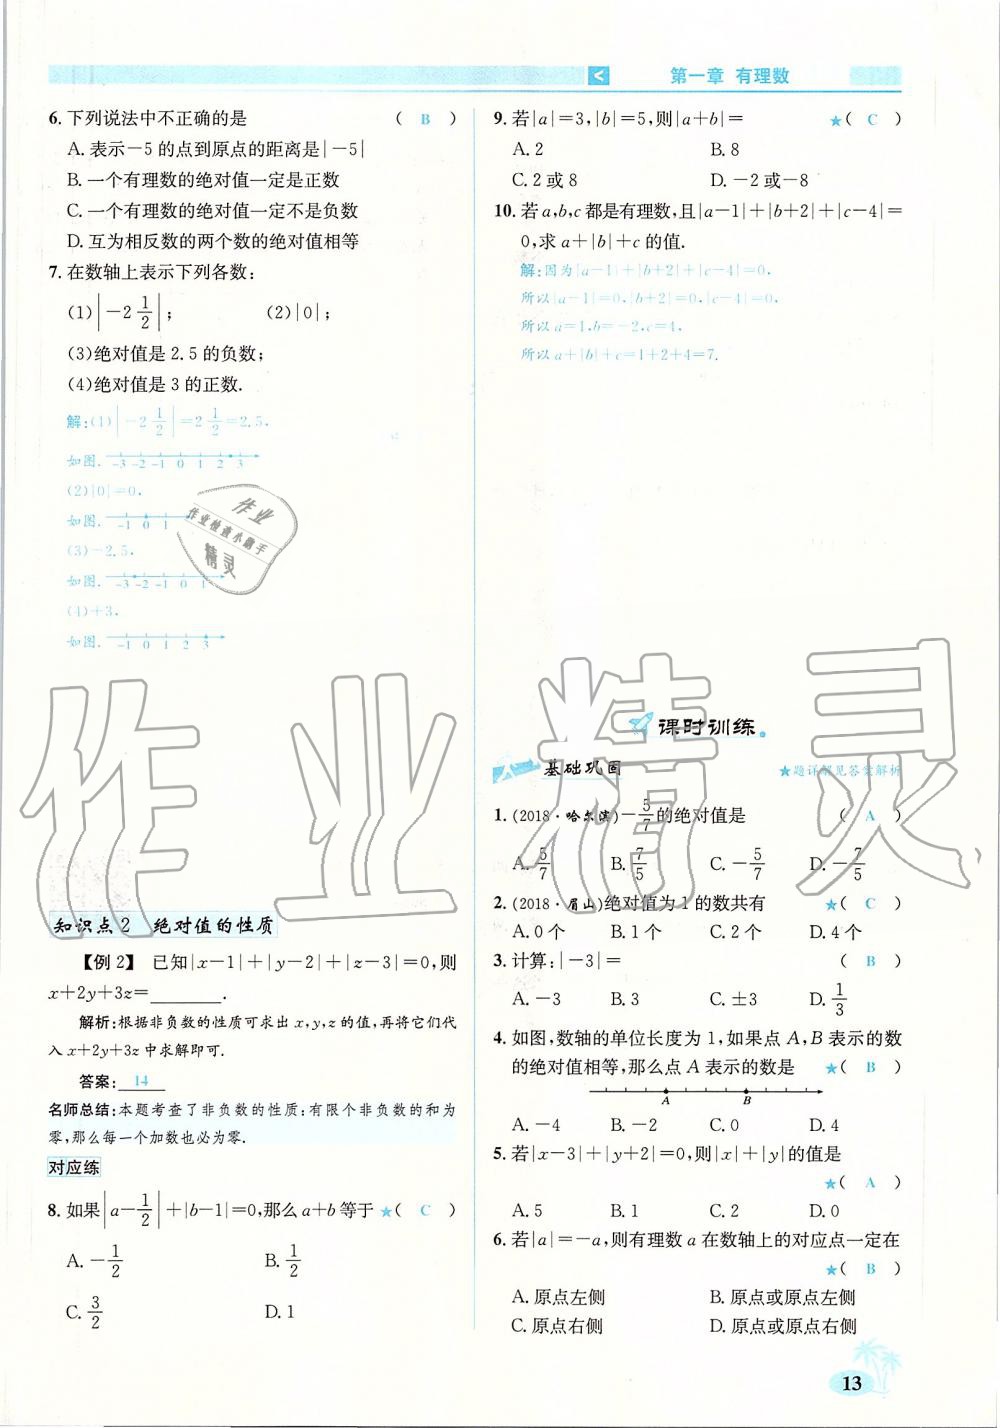 第一章 有理数
6. 下列说法中不正确的是 ( B )
A. 表示-5的点到原点的距离是|-5|
B. 一个有理数的绝对值一定是正数
C. 一个有理数的绝对值一定不是负数
D. 互为相反数的两个数的绝对值相等
7. 在数轴上表示下列各数:
(1)|-2 1/2|; (2)|0|;
(3)绝对值是2.5的负数;
(4)绝对值是3的正数.
解:(1)|-2 1/2|=2 1/2=2.5,
如图. -3 -2 -1 0 1 2 3
(2)|0|=0,
如图. -1 0 1
(3)-2.5,
如图. -3 -2 -1 0 1
(4)+3,
如图. -1 0 1 2 3
知识点2 绝对值的性质
【例2】 已知|x-1|+|y-2|+|z-3|=0,则
x+2y+3z=________.
解析:根据非负数的性质可求出x,y,z的值,再将它们代
入x+2y+3z中求解即可.
答案: 14
名师总结:本题考查了非负数的性质:有限个非负数的和为
零,那么每一个加数也必为零.
对应练
8. 如果|a-1/2|+|b-1|=0,那么a+b等于 ★( C )
A. -1/2 B. 1/2
C. 3/2 D. 1
9. 若|a|=3,|b|=5,则|a+b|= ★( C )
A. 2 B. 8
C. 2或8 D. -2或-8
10. 若a,b,c都是有理数,且|a-1|+|b+2|+|c-4|=
0,求a+|b|+c的值.
解:因为|a-1|+|b+2|+|c-4|=0,
所以|a-1|=0,|b+2|=0,|c-4|=0,
所以a=1,b=-2,c=4,
所以a+|b|+c=1+2+4=7.
课时训练
基础巩固 ★题详解见答案解析
1. (2018·哈尔滨)-5/7的绝对值是 ( A )
A. 5/7 B. 7/5 C. -5/7 D. -7/5
2. (2018·眉山)绝对值为1的数共有 ★( C )
A. 0个 B. 1个 C. 2个 D. 4个
3. 计算:|-3|= ( B )
A. -3 B. 3 C. ±3 D. 1/3
4. 如图,数轴的单位长度为1,如果点A,B表示的数
的绝对值相等,那么点A表示的数是 ★( B )
A B
A. -4 B. -2 C. 0 D. 4
5. 若|x-3|+|y+2|=0,则|x|+|y|的值是
★( A )
A. 5 B. 1 C. 2 D. 0
6. 若|a|=-a,则有理数a在数轴上的对应点一定在
★( B )
A. 原点左侧 B. 原点或原点左侧
C. 原点右侧 D. 原点或原点右侧
13
作业
作业检查小助手
精灵
作业精灵